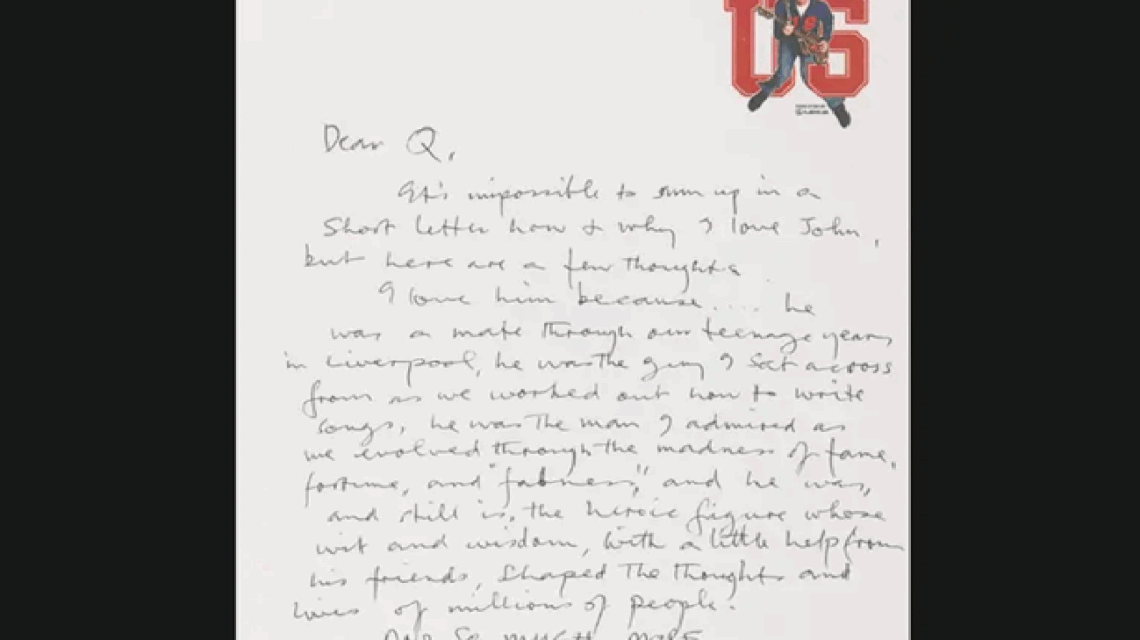 US
Dear Q,
It's impossible to sum up in a
short letter how & why I love John,
but here are a few thoughts
I love him because.... he
was a mate through our teenage years
in Liverpool, he was the guy I sat across
from as we worked out how to write
songs, he was the man I admired as
we evolved through the madness of fame,
fortune, and "fabness", and he was,
and still is, the heroic figure whose
wit and wisdom, with a little help from
his friends, shaped the thoughts and
lives of millions of people.
AND SO MUCH MORE